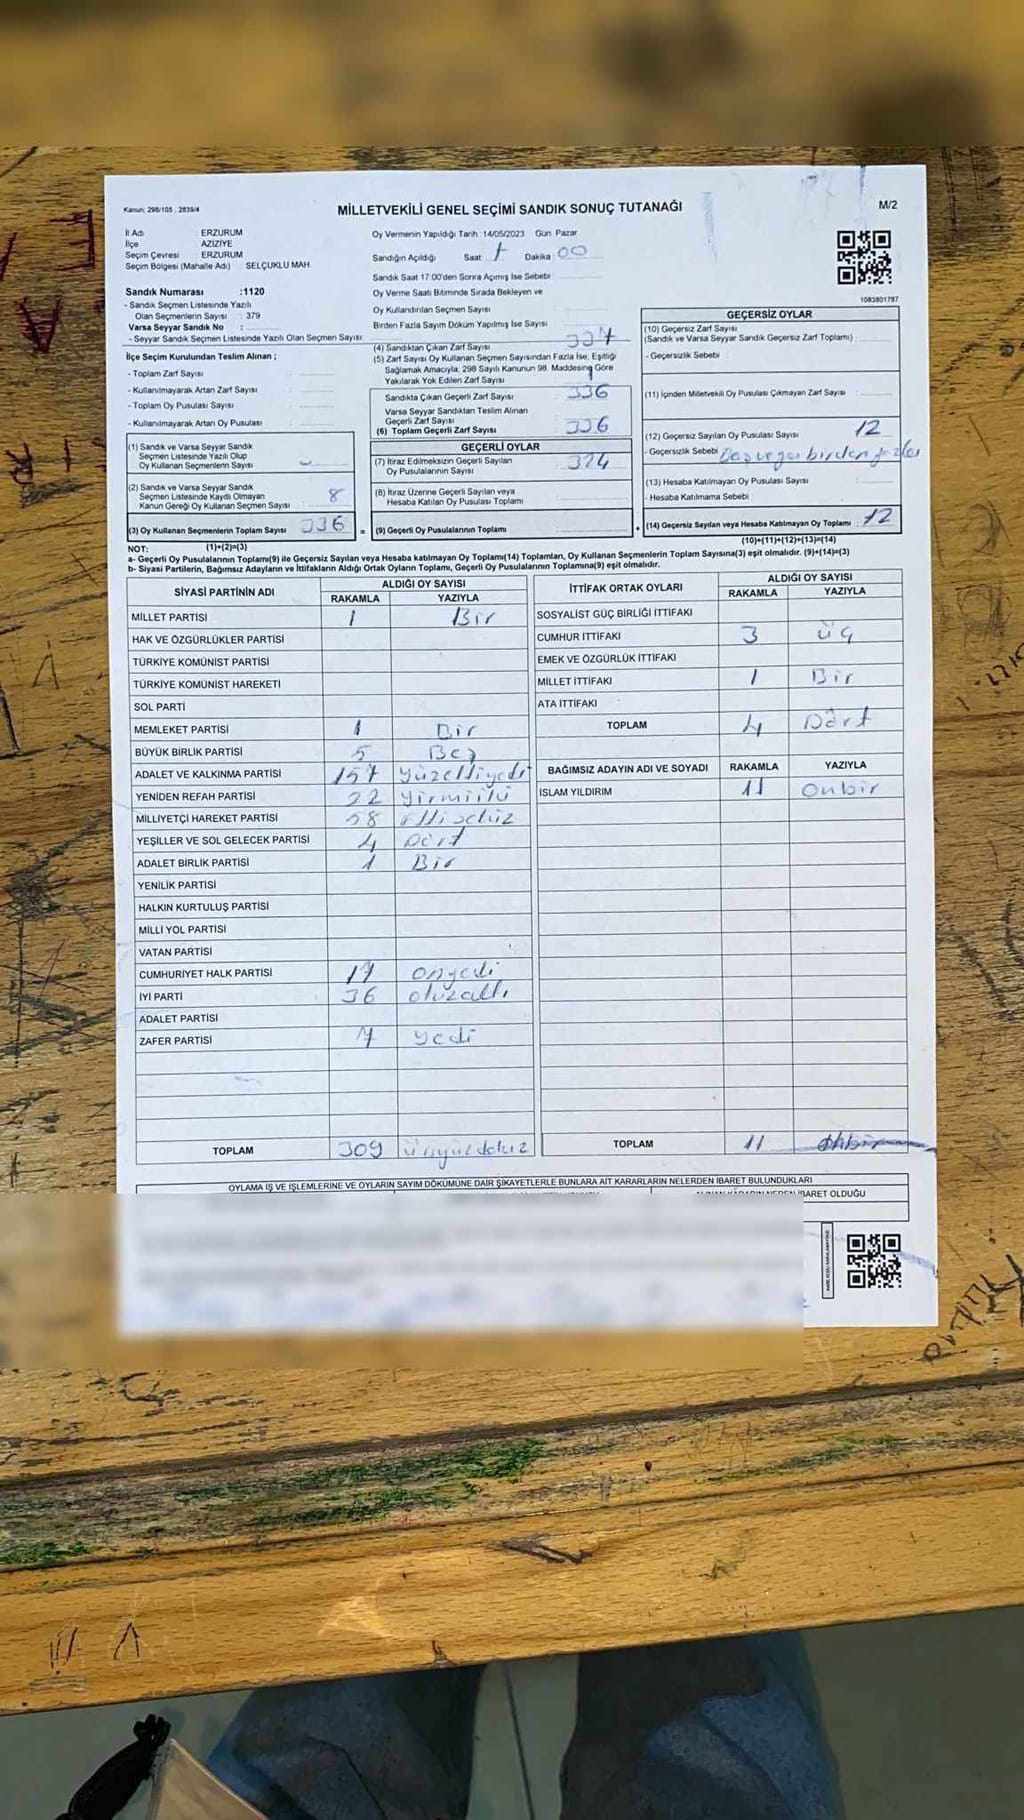 Kanun: 298/105 , 2839/4
MİLLETVEKİLİ GENEL SEÇİMİ SANDIK SONUÇ TUTANAĞI
M/2
İl Adı : ERZURUM
İlçe : AZİZİYE
Seçim Çevresi : ERZURUM
Seçim Bölgesi (Mahalle Adı) : SELÇUKLU MAH
Sandık Numarası :1120
- Sandık Seçmen Listesinde Yazılı
Olan Seçmenlerin Sayısı : 379
Varsa Seyyar Sandık No :
- Seyyar Sandık Seçmen Listesinde Yazılı Olan Seçmen Sayısı:
İlçe Seçim Kurulundan Teslim Alınan ;
- Toplam Zarf Sayısı :
- Kullanılmayarak Artan Zarf Sayısı :
- Toplam Oy Pusulası Sayısı :
- Kullanılmayarak Artan Oy Pusulası :
(1) Sandık ve Varsa Seyyar Sandık
Seçmen Listesinde Yazılı Olup
Oy Kullanan Seçmenlerin Sayısı :
(2) Sandık ve Varsa Seyyar Sandık
Seçmen Listesinde Kaydı Olmayan
Kanun Gereği Oy Kullanan Seçmen Sayısı : 8
(3) Oy Kullanan Seçmenlerin Toplam Sayısı : 336 =
Oy Vermenin Yapıldığı Tarih :14/05/2023 Gün: Pazar
Sandığın Açıldığı Saat : Dakika : 00
Sandık Saat 17:00'den Sonra Açılmış İse Sebebi :
Oy Verme Saati Bitiminde Sırada Bekleyen ve
Oy Kullandırılan Seçmen Sayısı :
Birden Fazla Sayım Döküm Yapılmış İse Sayısı :
(4) Sandıktan Çıkan Zarf Sayısı : 337
(5) Zarf Sayısı Oy Kullanan Seçmen Sayısından Fazla İse, Eşitliği
Sağlamak Amacıyla; 298 Sayılı Kanunun 98. Maddesine Göre
Yakılarak Yok Edilen Zarf Sayısı : 1
Sandıkta Çıkan Geçerli Zarf Sayısı : 336
Varsa Seyyar Sandıktan Teslim Alınan
Geçerli Zarf Sayısı :
(6) Toplam Geçerli Zarf Sayısı : 336
GEÇERLİ OYLAR
(7) İtiraz Edilmeksizin Geçerli Sayılan
Oy Pusulalarının Sayısı : 324
(8) İtiraz Üzerine Geçerli Sayılan veya
Hesaba Katılan Oy Pusulası Toplamı :
(9) Geçerli Oy Pusulalarının Toplamı : +
1083801787
GEÇERSİZ OYLAR
(10) Geçersiz Zarf Sayısı
(Sandık ve Varsa Seyyar Sandık Geçersiz Zarf Toplamı) :
- Geçersizlik Sebebi :
(11) İçinden Milletvekili Oy Pusulası Çıkmayan Zarf Sayısı :
(12) Geçersiz Sayılan Oy Pusulası Sayısı : 12
- Geçersizlik Sebebi : Boş veya birden fazla
(13) Hesaba Katılmayan Oy Pusulası Sayısı :
- Hesaba Katılmama Sebebi :
(14) Geçersiz Sayılan veya Hesaba Katılmayan Oy Toplamı : 12
NOT: (1)+(2)=(3) (10)+(11)+(12)+(13)=(14)
a- Geçerli Oy Pusulalarının Toplamı(9) ile Geçersiz Sayılan veya Hesaba katılmayan Oy Toplamı(14) Toplamları, Oy Kullanan Seçmenlerin Toplam Sayısına(3) eşit olmalıdır. (9)+(14)=(3)
b- Siyasi Partilerin, Bağımsız Adayların ve İttifakların Aldığı Ortak Oyların Toplamı, Geçerli Oy Pusulalarının Toplamına(9) eşit olmalıdır.
SİYASİ PARTİNİN ADI ALDIĞI OY SAYISI
RAKAMLA YAZIYLA
MİLLET PARTİSİ 1 Bir
HAK VE ÖZGÜRLÜKLER PARTİSİ
TÜRKİYE KOMÜNİST PARTİSİ
TÜRKİYE KOMÜNİST HAREKETİ
SOL PARTİ
MEMLEKET PARTİSİ 1 Bir
BÜYÜK BİRLİK PARTİSİ 5 Beş
ADALET VE KALKINMA PARTİSİ 157 yüzelliyedi
YENİDEN REFAH PARTİSİ 22 yirmiiki
MİLLİYETÇİ HAREKET PARTİSİ 58 ellisekiz
YEŞİLLER VE SOL GELECEK PARTİSİ 4 Dört
ADALET BİRLİK PARTİSİ 1 Bir
YENİLİK PARTİSİ
HALKIN KURTULUŞ PARTİSİ
MİLLİ YOL PARTİSİ
VATAN PARTİSİ
CUMHURİYET HALK PARTİSİ 17 onyedi
İYİ PARTİ 36 otuzaltı
ADALET PARTİSİ
ZAFER PARTİSİ 7 yedi
TOPLAM 309 üçyüzdokuz
İTTİFAK ORTAK OYLARI ALDIĞI OY SAYISI
RAKAMLA YAZIYLA
SOSYALİST GÜÇ BİRLİĞİ İTTİFAKI
CUMHUR İTTİFAKI 3 üç
EMEK VE ÖZGÜRLÜK İTTİFAKI
MİLLET İTTİFAKI 1 Bir
ATA İTTİFAKI
TOPLAM 4 Dört
BAĞIMSIZ ADAYIN ADI VE SOYADI RAKAMLA YAZIYLA
İSLAM YILDIRIM 11 onbir
TOPLAM 11 onbir
OYLAMA İŞ VE İŞLEMLERİNE VE OYLARIN SAYIM DÖKÜMÜNE DAİR ŞİKAYETLERLE BUNLARA AİT KARARLARIN NELERDEN İBARET BULUNDUKLARI
İBARET OLDUĞU